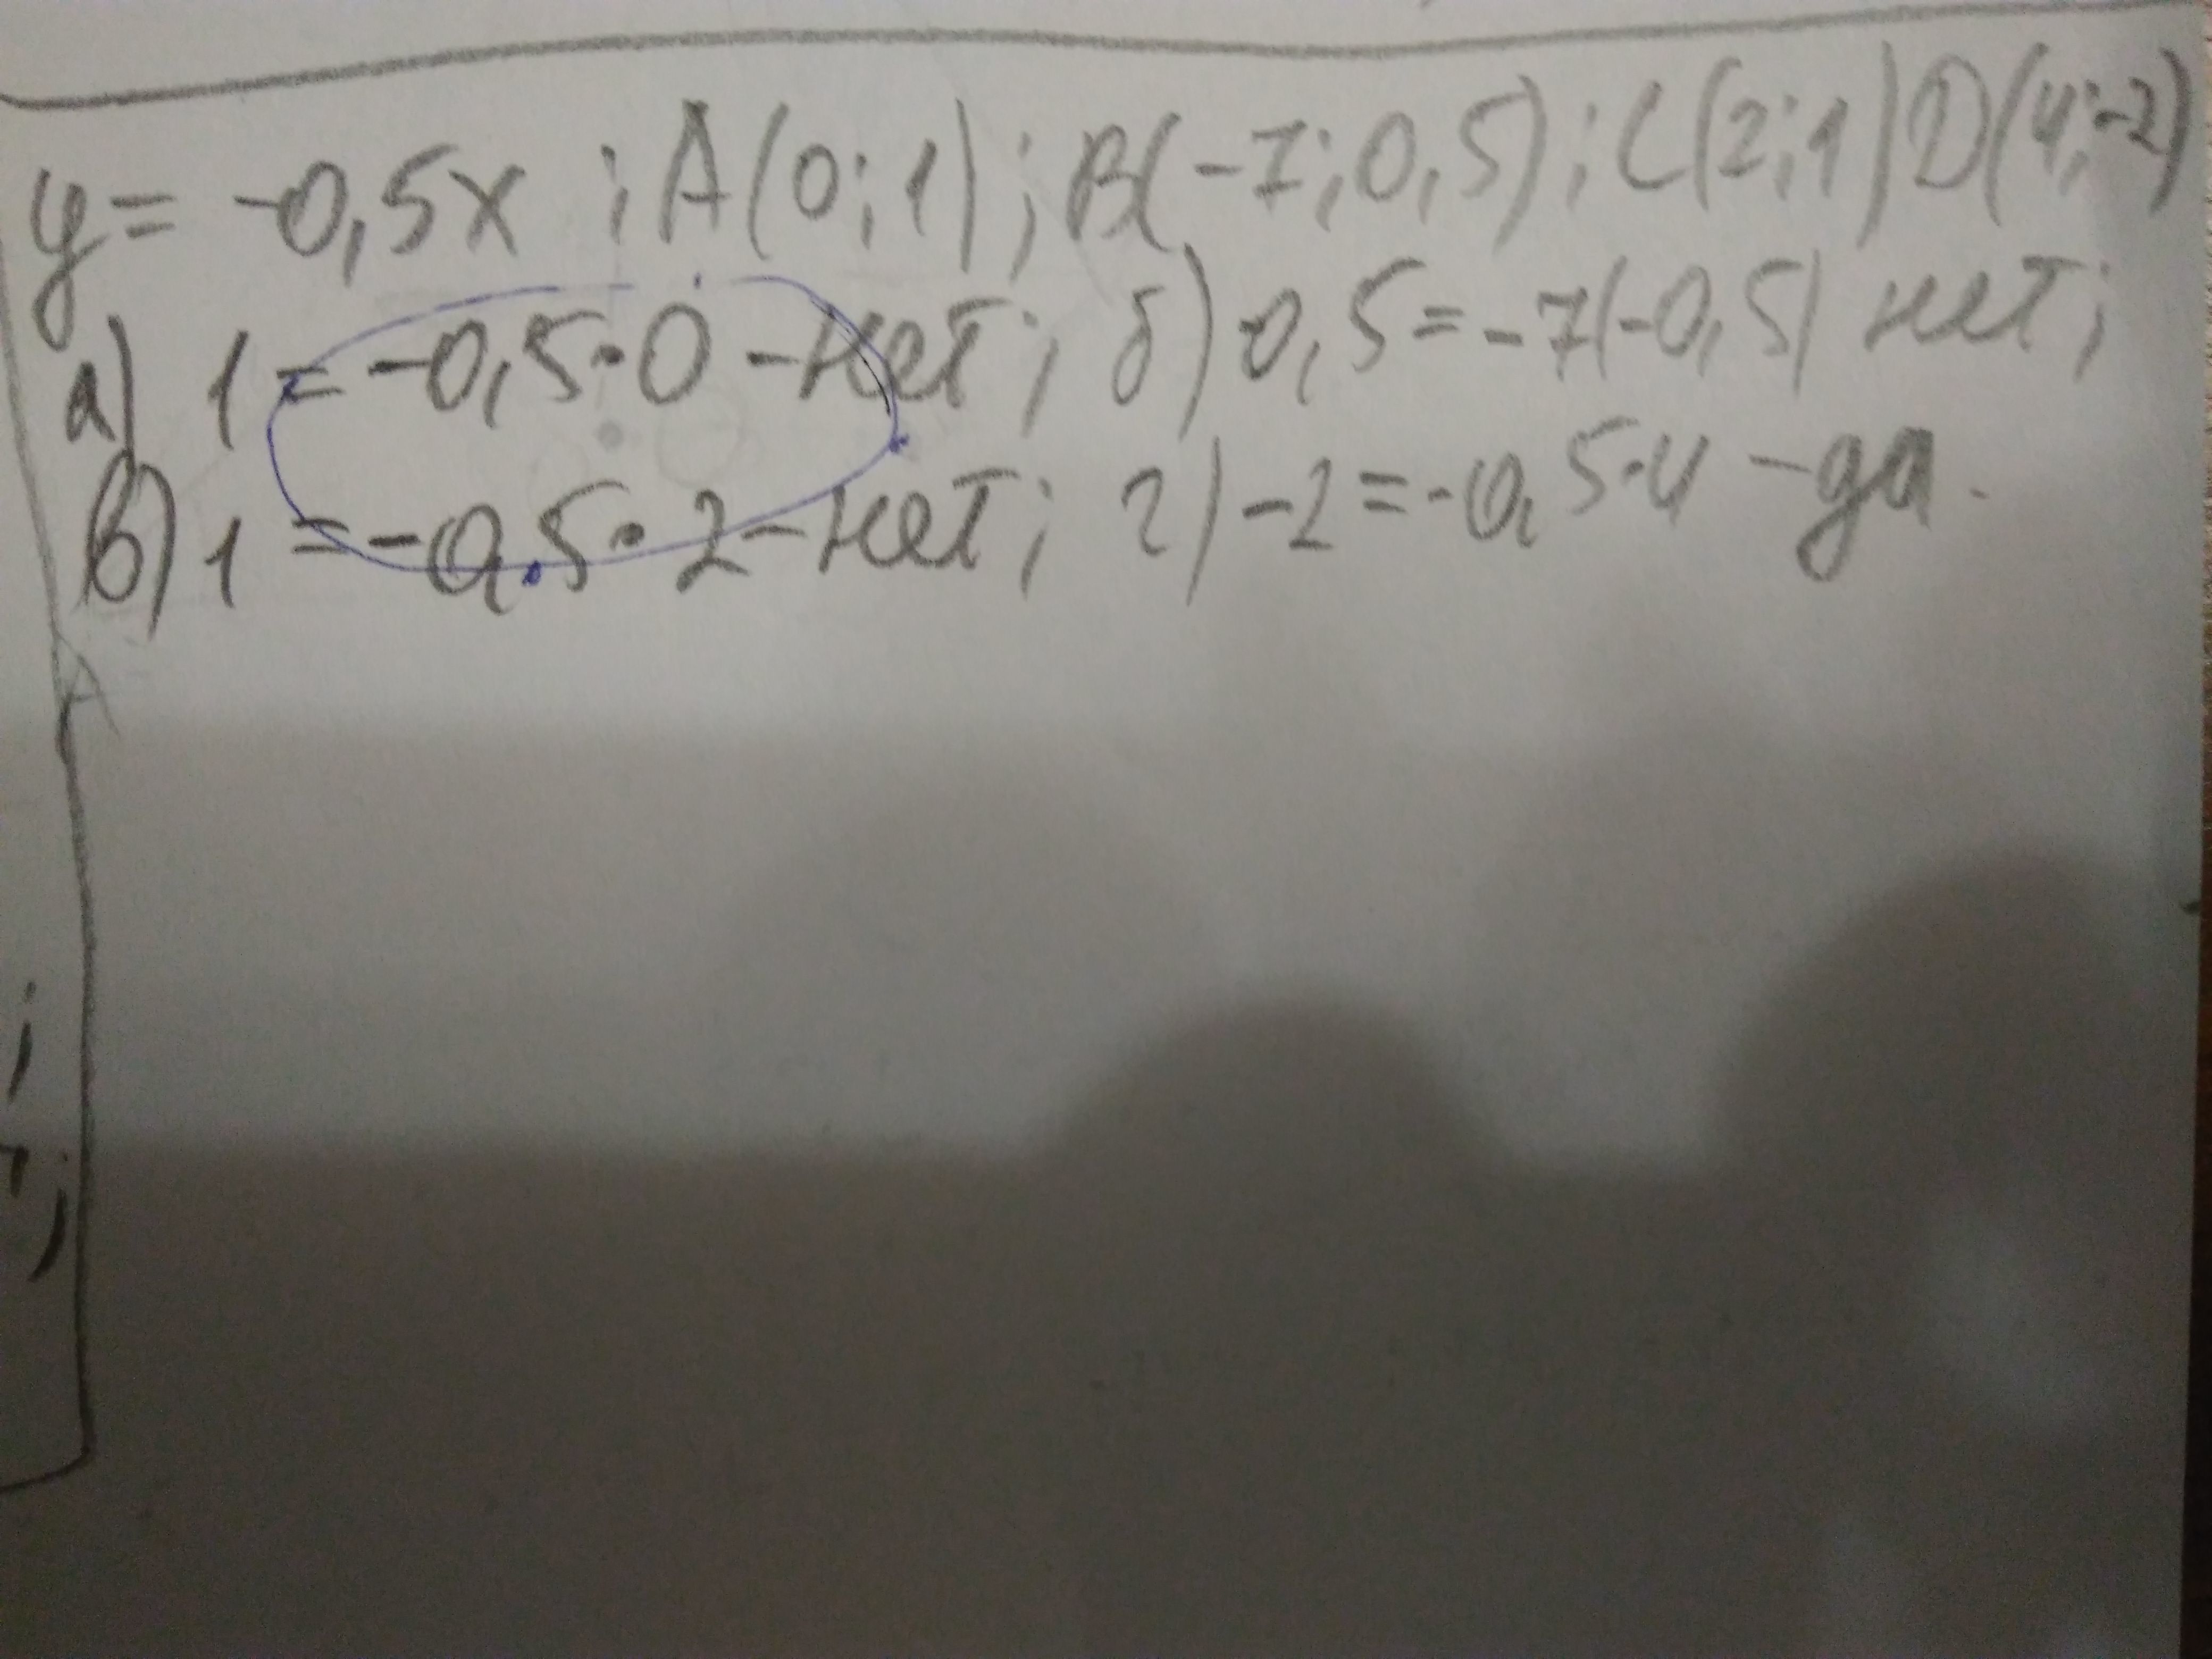 y = -0,5x ; A(0;1) ; B(-7;0,5) ; C(2;1) D(4;-2)
а) 1 = -0,5·0 - нет; б) 0,5 = -7(-0,5) нет;
в) 1 = -0,5·2 - нет; г) -2 = -0,5·4 - да.
А
;